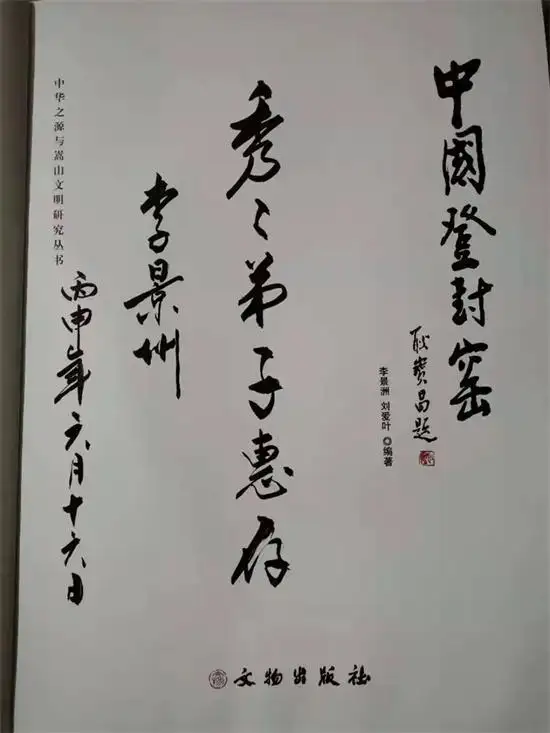 中國登封窑
耿寶昌题
李景洲 刘爱叶 ◎编著
秀々弟子惠存
李景州
丙申年六月十六日
中华之源与嵩山文明研究丛书
文物出版社